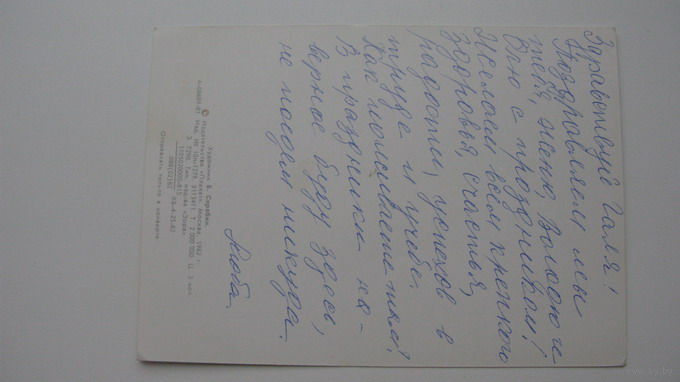 Здравствуй Галя!
Поздравляем мы
тебя, Женю, Володю и
Олю с праздником!
Желаем всем крепкого
здоровья, счастья,
радости, успехов в
труде и учёбе.
Как поживаете там?
В праздники на-
верное буду здесь,
не поедем никуда.
Люба.
Художник Б. Скрябин
© Издательство «Плакат», Москва, 1982 г.
Отправлять только в конверте